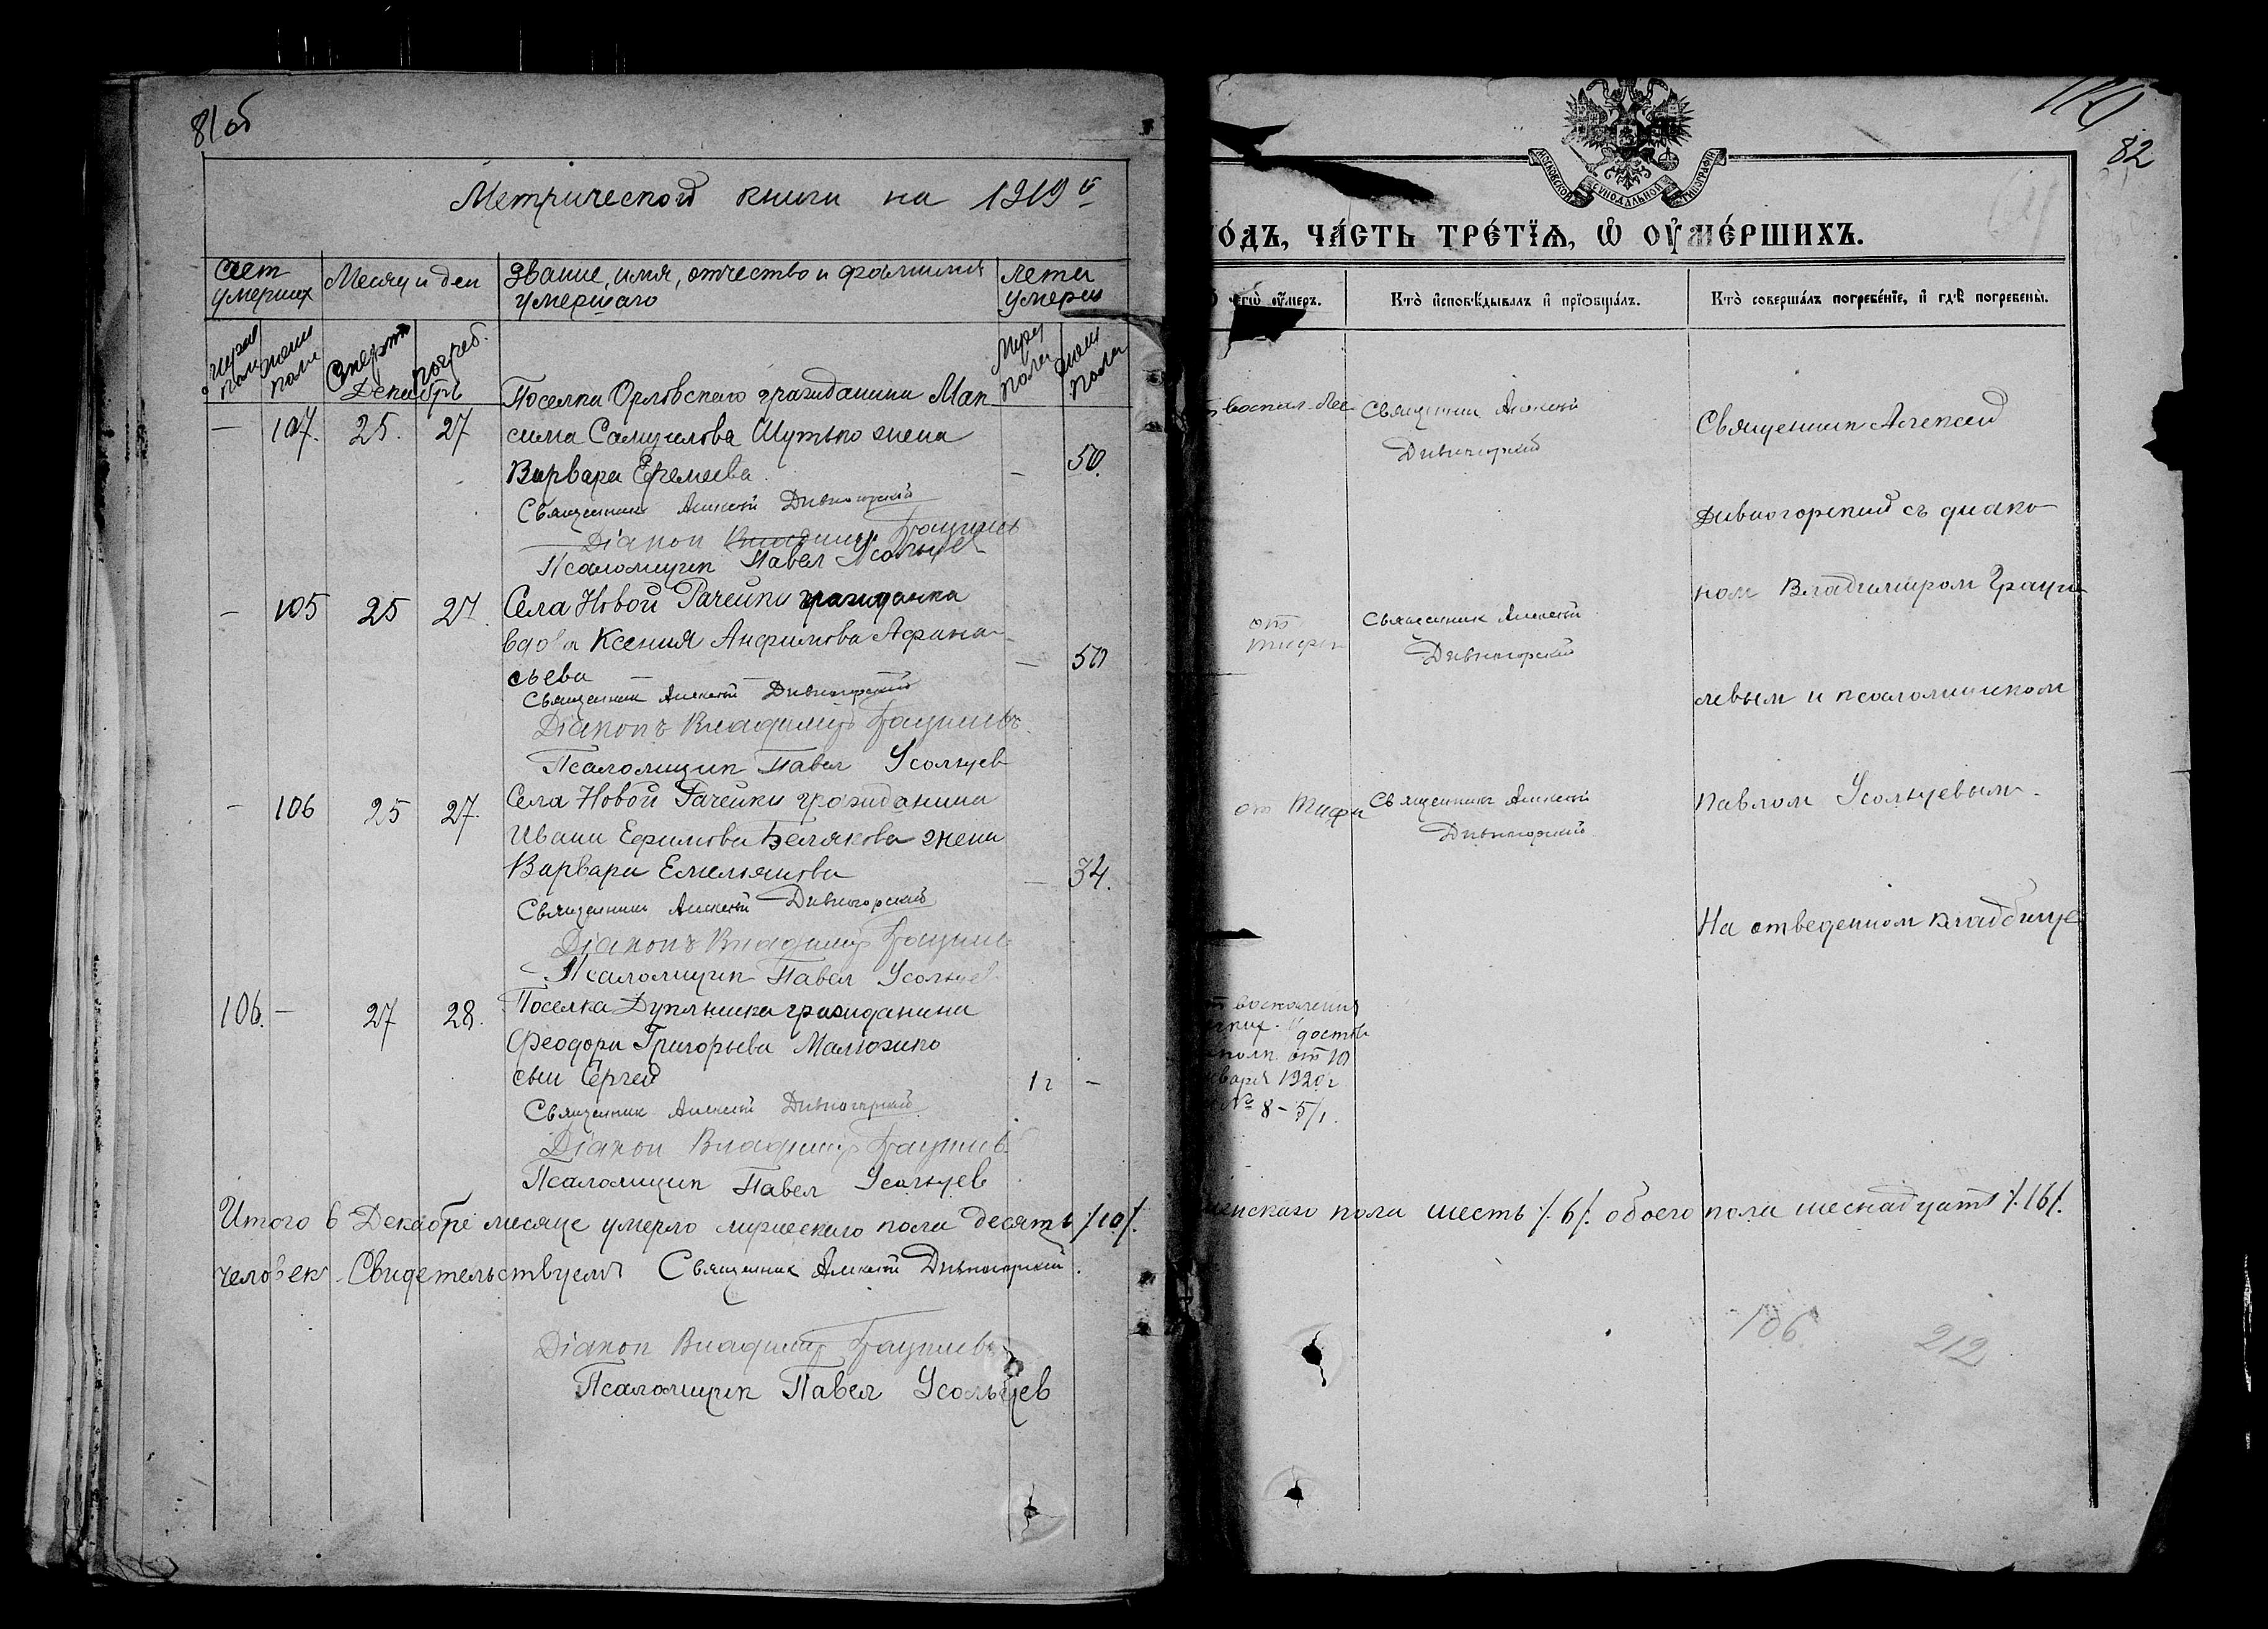 81 об
Метрической книги на 1919 г.
счет умерших
Месяц и ден
Звание, имя, отчество и фамилия умершаго
лета умерш
муж пола
жен пола
Смерти
погреб.
Декабрь
муж пола
жен пола
Поселка Орловскаго гражданина Мак
— 107. 25. 27 сима Самуилова Шутько жена
Варвара Еремеева. — 50.
Священник Алексей Дивногорский
Діакон Владимир
Псаломщик Павел Усольцев
— 105 25 27. Села Новой Рачейки гражданка
вдова Ксения Анфимова Афана-
сьева — 50
Священник Алексей Дивногорский
Діаконъ Владимир
Псаломщик Павел Усольцев
— 106 25 27. Села Новой Рачейки гражданина
Ивана Ефимова Белякова жена
Варвара Емельянова — 34.
Священник Алексей Дивногорский
Діаконъ Владимир
Псаломщик Павел Усольцев
106. — 27 28. Поселка Дупленска гражданина
Феодора Григорьева Малюхино
сын Сергей 1 г —
Священник Алексей Дивногорский
Діакон Владимир
Псаломщик Павел Усольцев
Итого в Декабре месяце умерло мужескаго пола десять /10/.
человек. Свидетельствуем Священник Алексей Дивногорский.
Діакон Владимир
Псаломщик Павел Усольцев
82
МОСКОВСКОЙ СѴНОДАЛЬНОЙ ТИПОГРАФІИ
ОДЪ, ЧА́СТЬ ТРЕ́ТЇѦ, Ѡ ОУМЕ́РШИХЪ.
чегѡ оумеръ.
Кто̀ исповѣдывалъ и прїѡбщалъ.
Кто̀ соверша́лъ погребе́нїе, и гдѣ̀ погребены̀.
воспал. лег
Священник Алексей
Дивногорский
Священник Алексей
Дивногорский с диако
ном Владимиром
левым и псаломщиком
Павлом Усольцевым.
На отведенном кладбище
от тифа
Священник Алексей
Дивногорский
от тифа
Священник Алексей
Дивногорский
воспаления
от 10
января 1920 г
№ 8 – 5/1.
женскаго пола шесть /.6/. обоего пола шеснадцать /.16/.
106
212